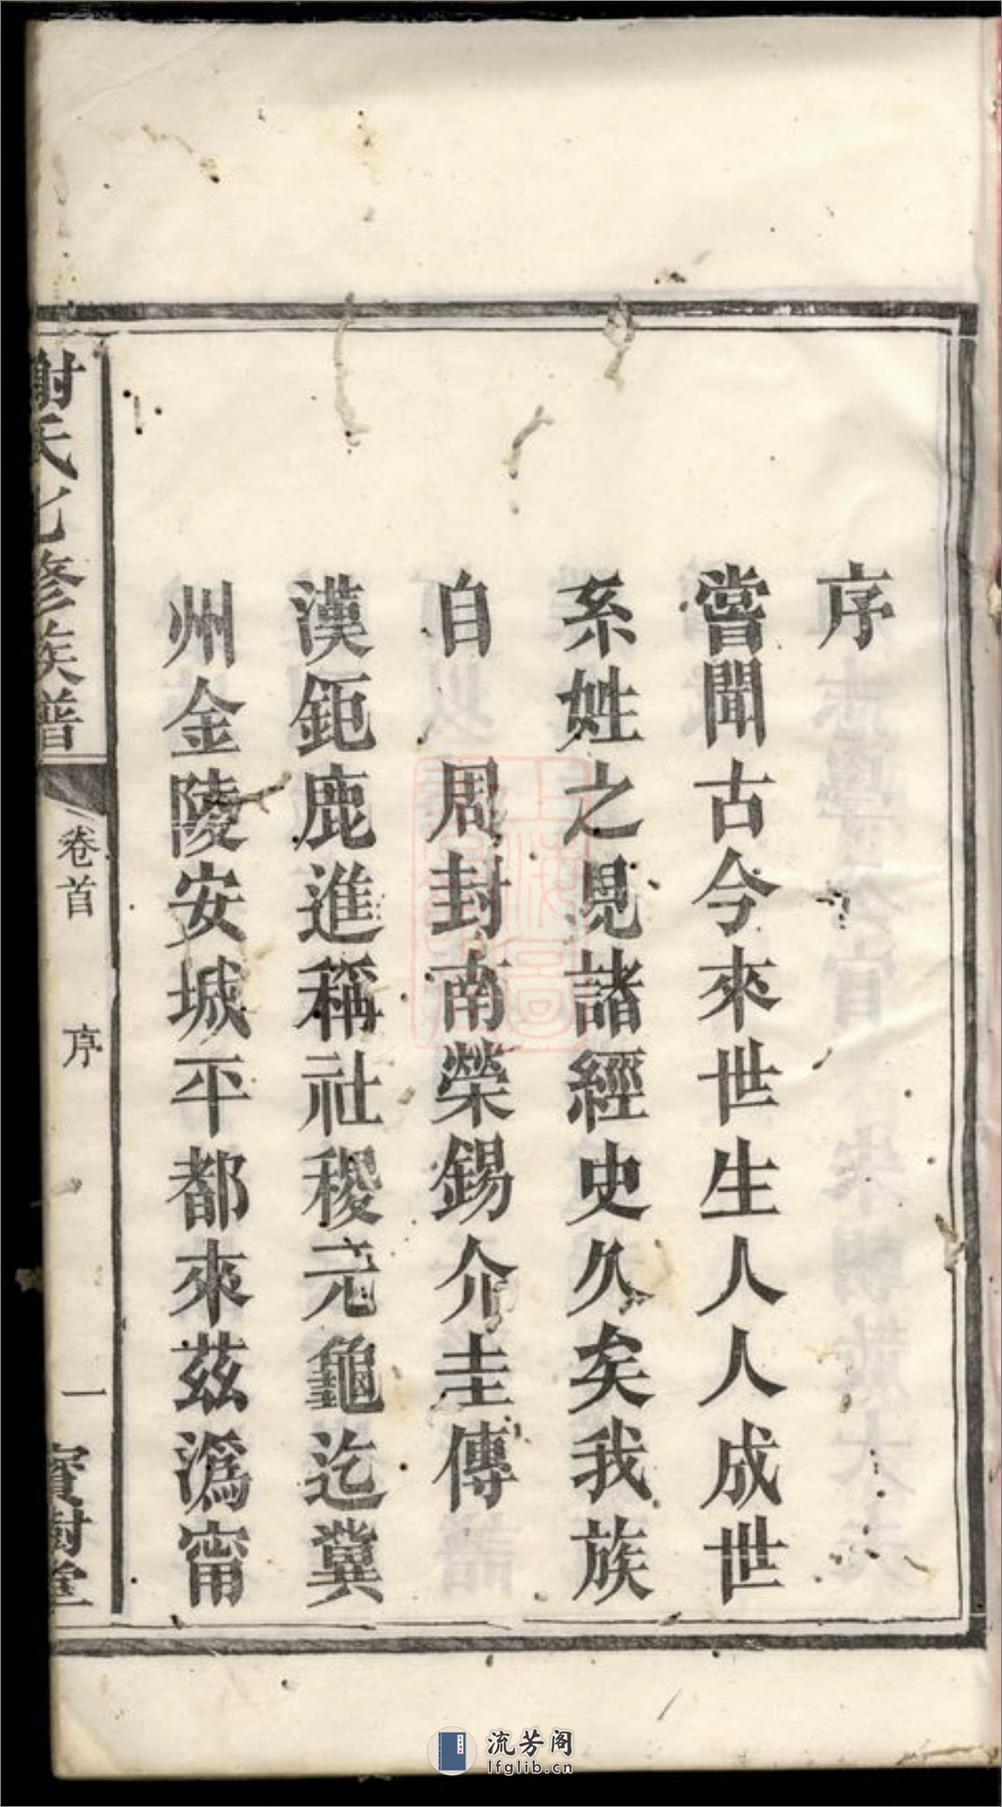 序
嘗聞古今來世生人人成世
系姓之見諸經史久矣我族
自 周封南榮錫介圭傳
漢鉅鹿進稱社稷元龜迄冀
州金陵安城平都來茲溈甯
謝氏七修族譜
卷首
序
一
寶樹堂
流芳阁
lfglib.cn